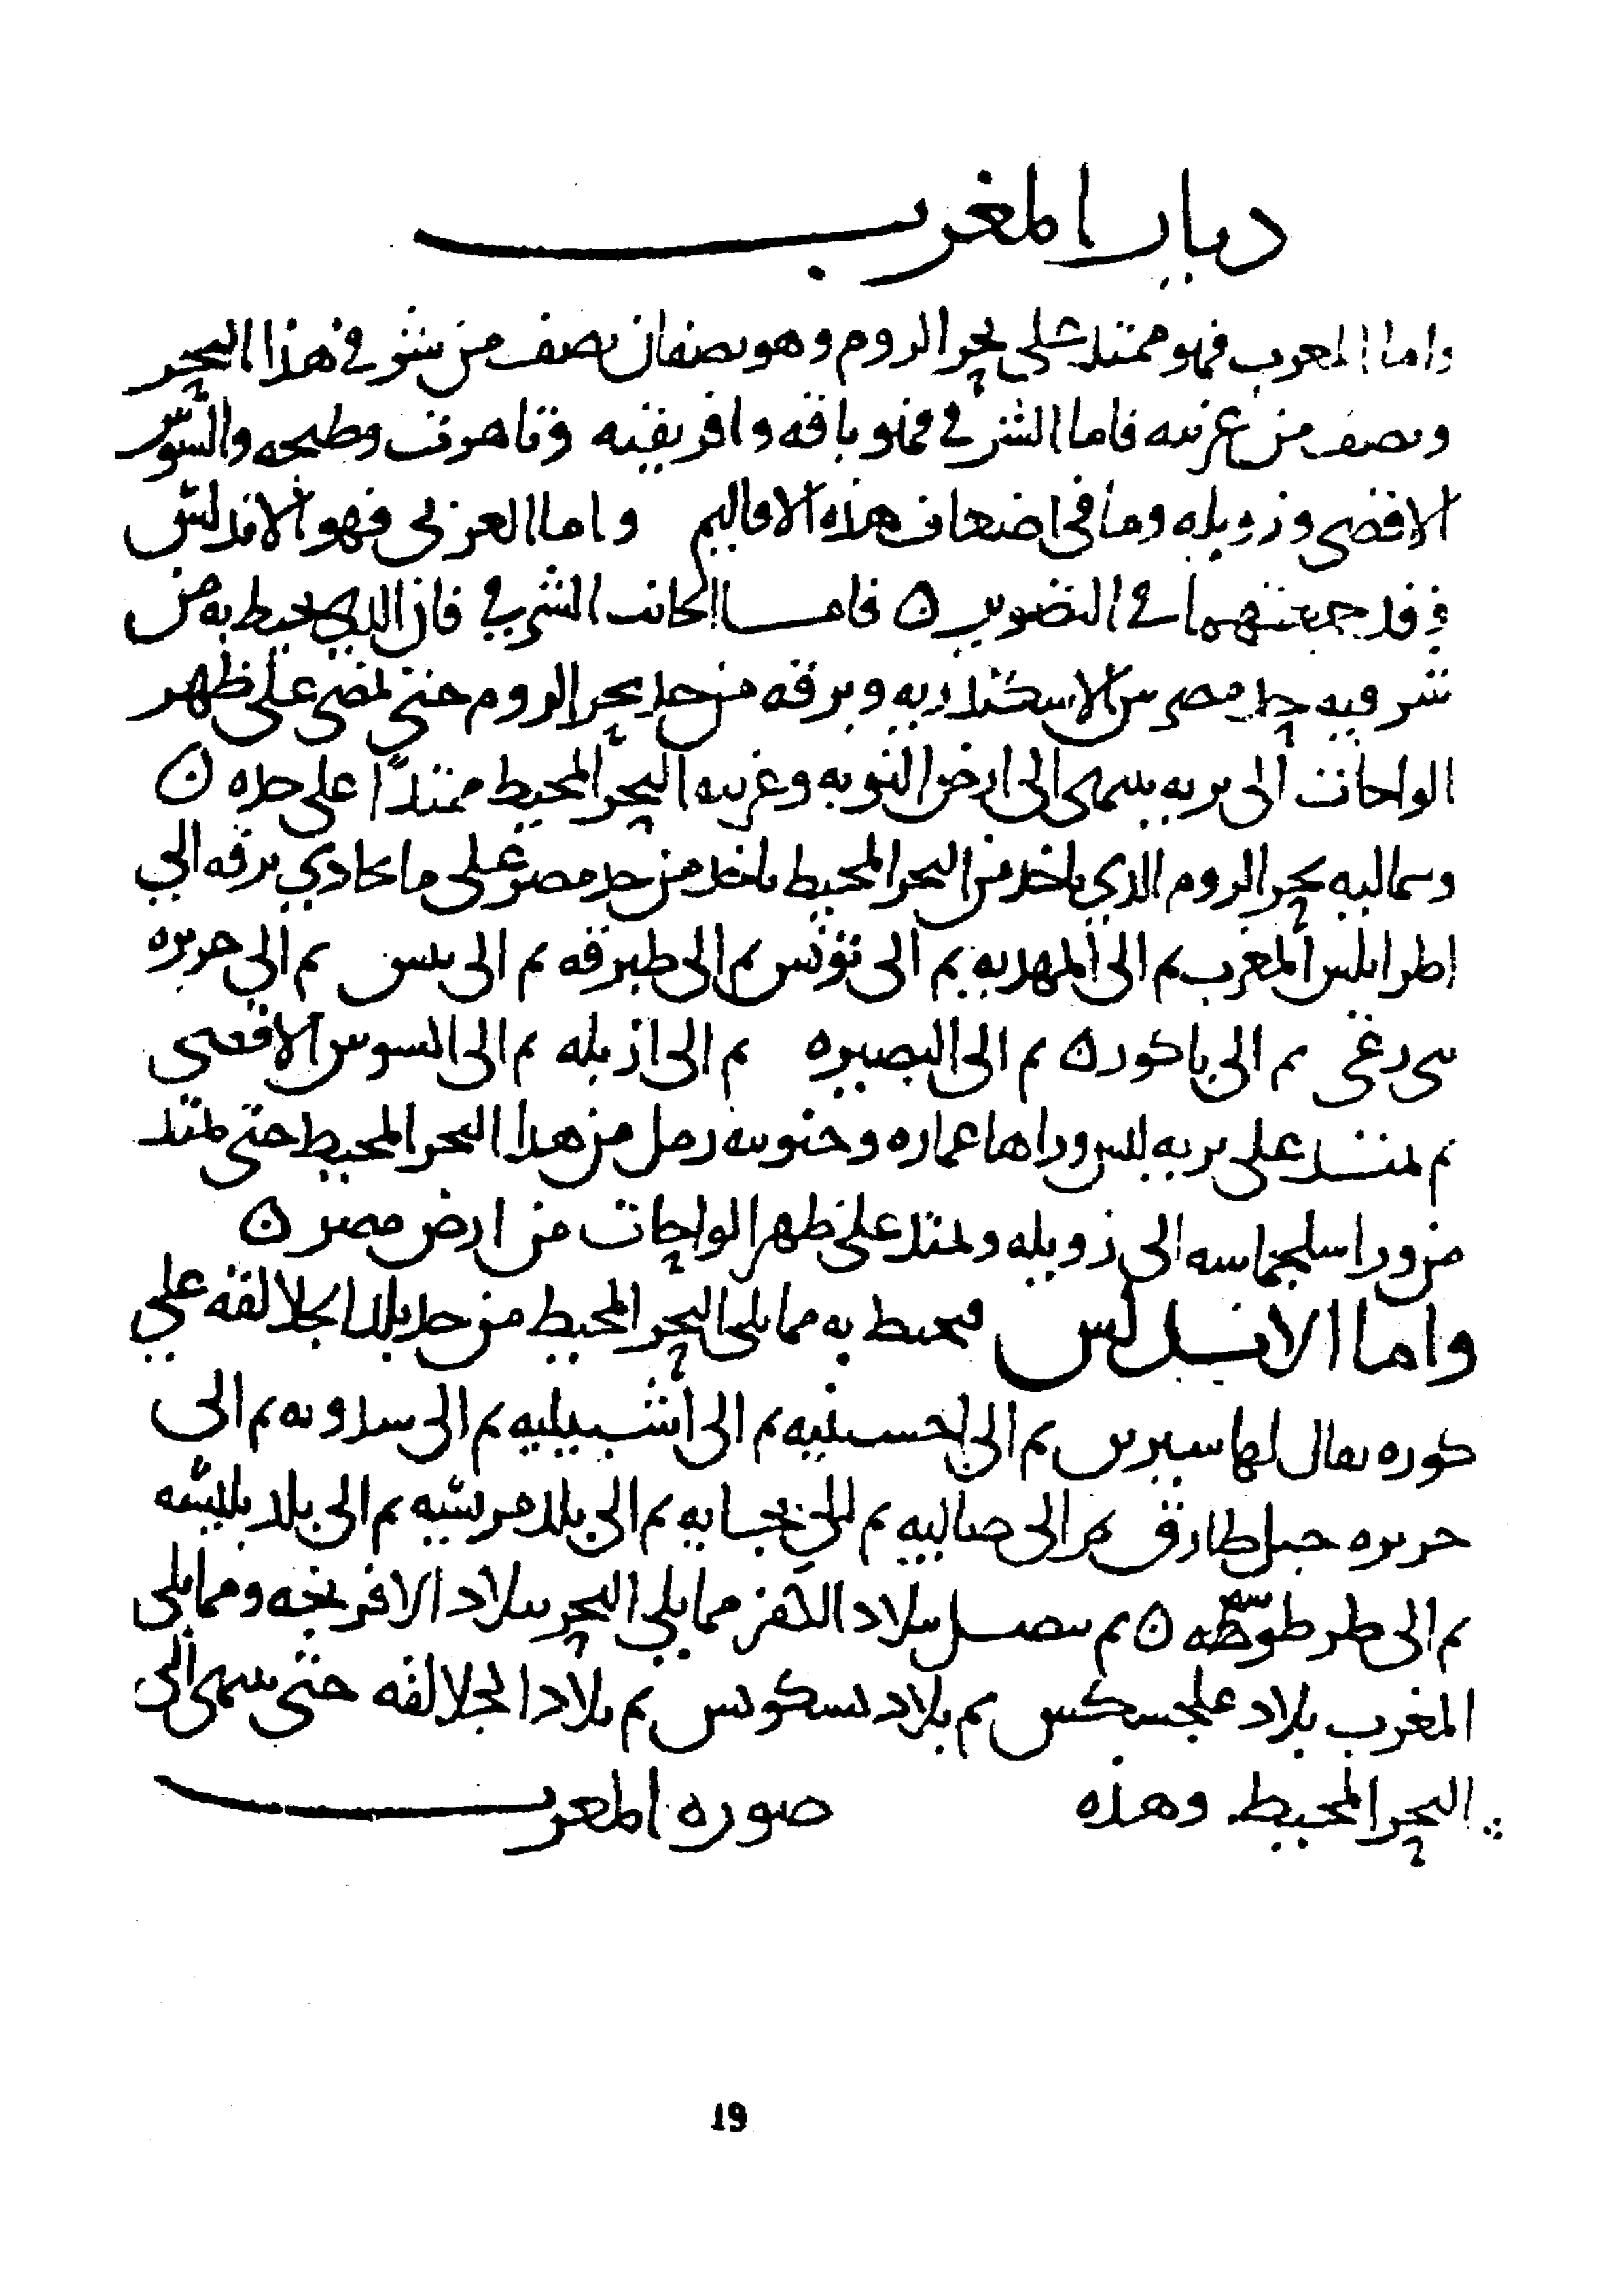 ديار المغرب
واما المغرب فهو ممتد على بحر الروم وهو نصفان نصف من شرقي هذا البحر
ونصف من غربيه فاما الشرقي فهو باقه وافريقيه وتاهرت وطنجه والسوس
الاقصى وزويله وما في اضعاف هذه الاقاليم واما الغربي فهو الاندلس
وقد جمعتهما في التصوير ن فاما الجانب الشرقي فان الذي يحيط به من
شرقيه حد مصر من الاسكندريه وبرقه من حد بحر الروم حتى تمضي على ظهر
الواحات الى بريه تنتهى الى ارض النوبه وغربيه البحر المحيط ممتدا على حده ن
وشماليه بحر الروم الذي ياخذ من البحر المحيط ياخذ من حد مصر على ما يحاذي برقه الى
اطرابلس المغرب ثم الى المهديه ثم الى تونس ثم الى طبرقه ثم الى تنس ثم الى جزيره
بنى رغنى ثم الى باكور ن ثم الى البصيره ثم الى ازيله ثم الى السوس الاقصى
ثم تمتد على بريه ليس وراها عماره وجنوبيه رمل من هذا البحر المحيط حتى تمتد
من ورا سلجماسه الى زويله وتمتد على ظهر الواحات من ارض مصر ن
واما الاندلس فيحيط به مما يلى البحر المحيط من حد بلد الجلالقه على
كوره يقال لها شنترين ثم الى اخسنبه ثم الى اشبيليه ثم الى سدونه ثم الى
جزيره جبل طارق ثم الى مالقه ثم الى بجانه ثم الى بلاد مرسيه ثم الى بلد بلنسيه
ثم الى طرطوشه ن ثم يتصل ببلاد الكفر مما يلي البحر ببلاد الافرنجه ومما يلى
المغرب بلاد علجسكس ثم بلاد بسكونس ثم بلاد الجلالقه حتى ينتهى الى
البحر المحيط وهذه صوره المغرب
19